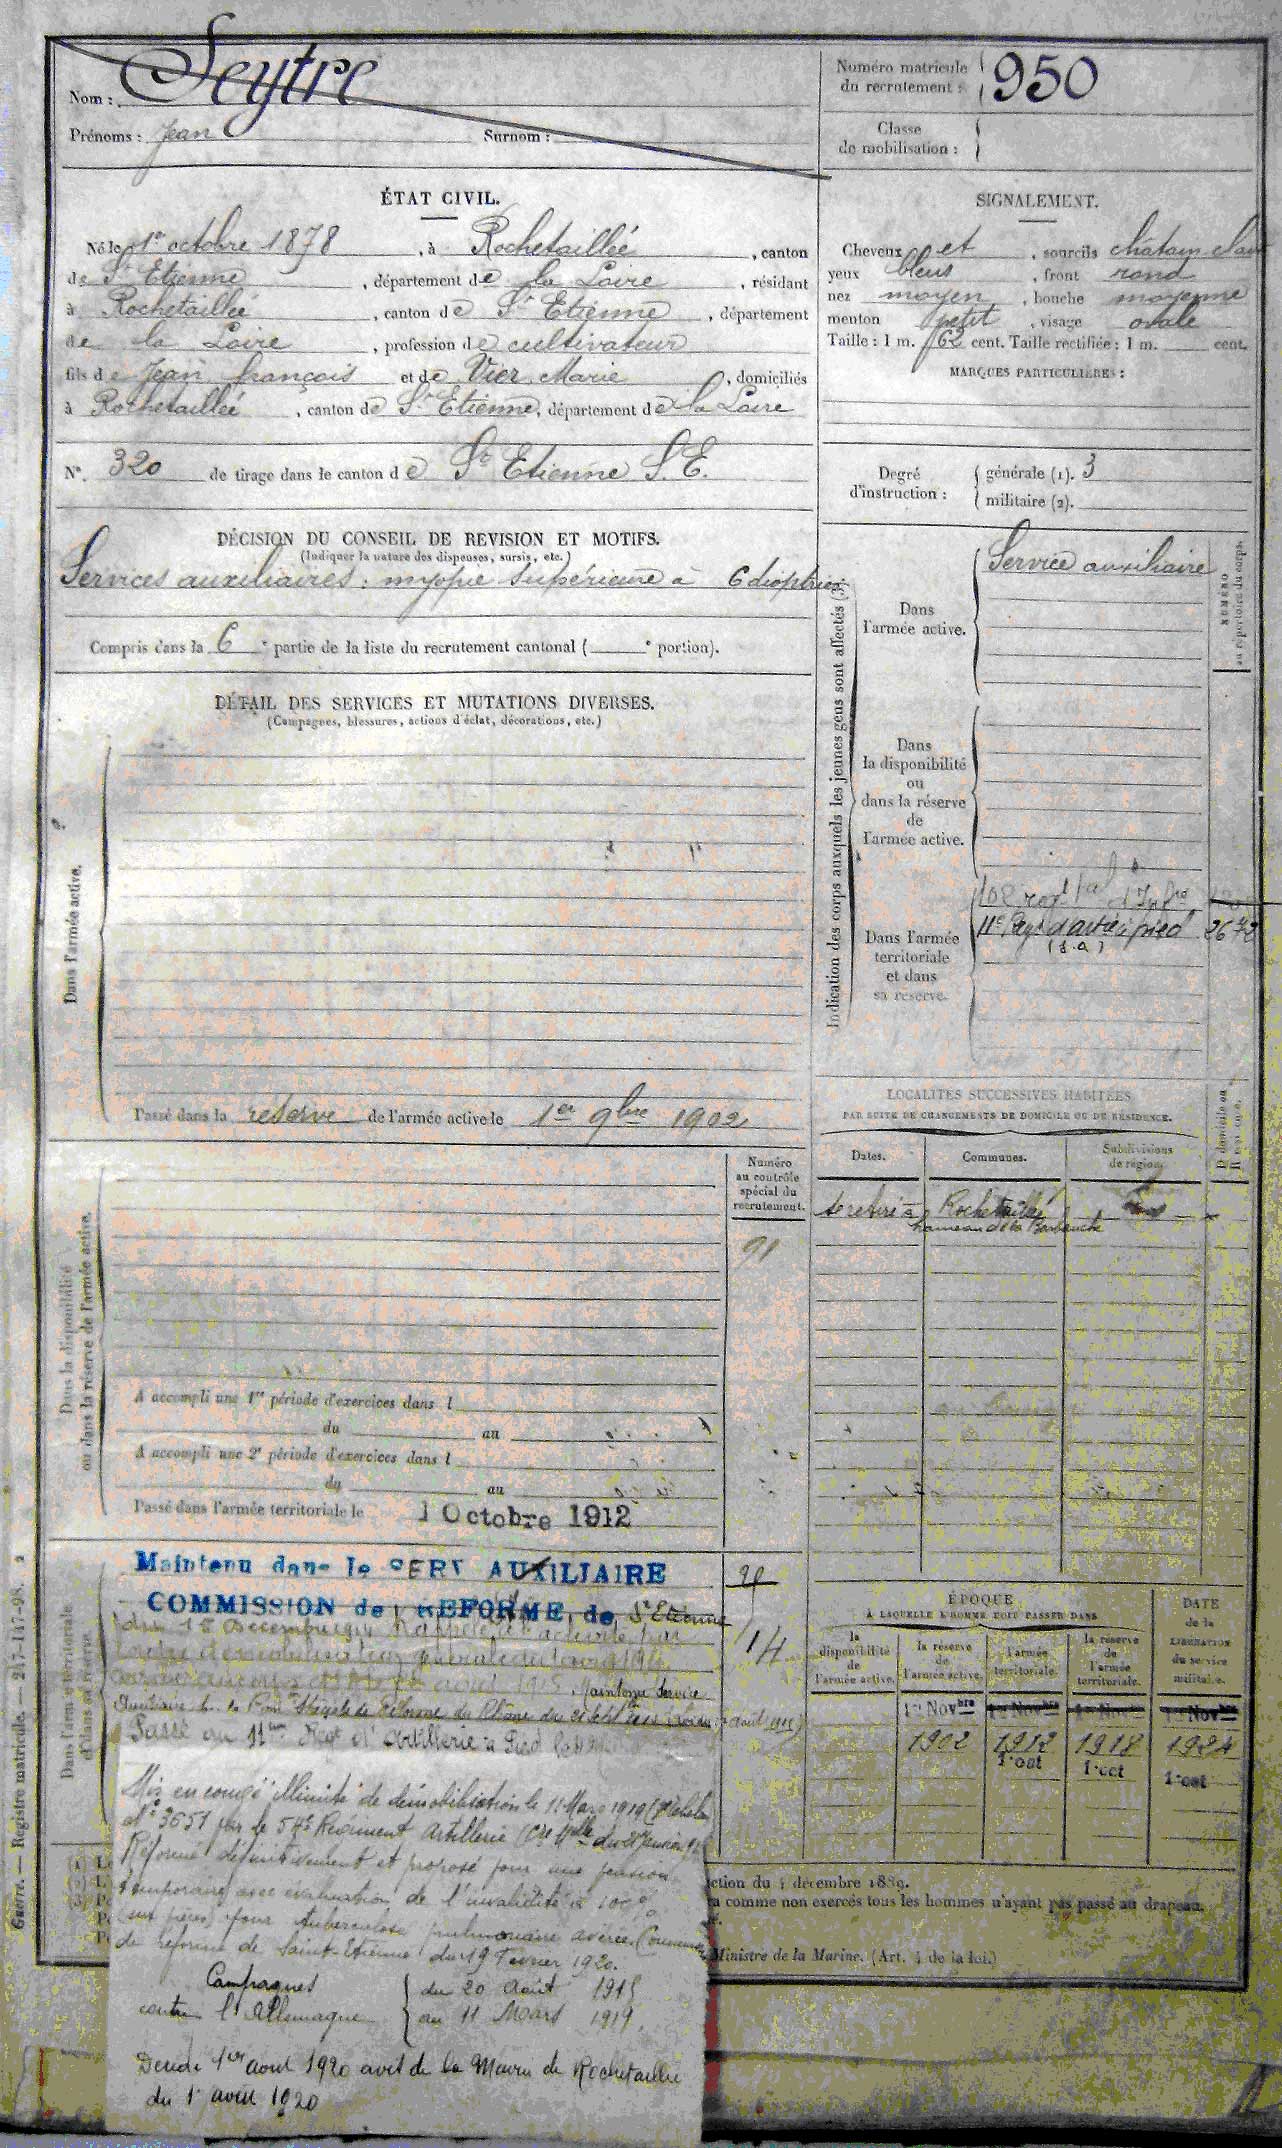 Nom : Seytre
Prénoms : Jean Surnom :
Numéro matricule du recrutement : 950
Classe de mobilisation :
ÉTAT CIVIL.
Né le 1er octobre 1878, à Rochetaillée, canton
de St Etienne, département de la Loire, résidant
à Rochetaillée, canton de St Etienne, département
de la Loire, profession de cultivateur
fils de Jean françois et de Vier Marie, domiciliés
à Rochetaillée, canton de St Etienne, département de la Loire
N° 320 de tirage dans le canton de St Etienne S.E.
SIGNALEMENT.
Cheveux et, sourcils châtain clair
yeux bleus, front rond
nez moyen, bouche moyenne
menton petit, visage ovale
Taille : 1 m. 62 cent. Taille rectifiée : 1 m. cent.
MARQUES PARTICULIÈRES :
Degré d'instruction : générale (1). 3
militaire (2).
DÉCISION DU CONSEIL DE REVISION ET MOTIFS.
(Indiquer la nature des dispenses, sursis, etc.)
Services auxiliaires : myopie supérieure à 6 dioptries
Compris dans la 6e partie de la liste du recrutement cantonal ( e portion).
DÉTAIL DES SERVICES ET MUTATIONS DIVERSES.
(Campagnes, blessures, actions d'éclat, décorations, etc.)
Dans l'armée active.
Passé dans la réserve de l'armée active le 1er 9bre 1902
Indication des corps auxquels les jeunes gens sont affectés (3).
NUMÉRO au répertoire du corps.
Dans l'armée active.
Service auxiliaire
Dans la disponibilité ou dans la réserve de l'armée active.
Dans l'armée territoriale et dans sa réserve.
11e Régt d'artie à pied 2672
(s.a)
LOCALITÉS SUCCESSIVES HABITÉES
PAR SUITE DE CHANGEMENTS DE DOMICILE OU DE RÉSIDENCE.
Dates. Communes. Subdivisions de région.
se retire à Rochetaillée
hameau de la
Dans la disponibilité ou dans la réserve de l'armée active.
Numéro au contrôle spécial du recrutement.
91
A accompli une 1re période d'exercices dans l
du au
A accompli une 2e période d'exercices dans l
du au
Passé dans l'armée territoriale le 1 Octobre 1912
Dans l'armée territoriale et dans sa réserve.
Maintenu dans le SERV AUXILIAIRE
COMMISSION de REFORME de St Etienne
du 15 décembre 1914 Rappelé à l'activité par
14
Maintenu Service
Passé au 11eme Regt d'Artillerie à Pied le
Mis en congé illimité de démobilisation le 11 Mars 1919
n° 3651 par le 54e Régiment Artillerie
Réformé définitivement et proposé pour une pension
temporaire avec évaluation de l'invalidité à 100%
pour tuberculose pulmonaire avérée
de réforme de Saint-Etienne du 19 Fevrier 1920.
Campagnes
contre l'Allemagne
du 20 Août 1915
au 11 Mars 1919.
1er aout 1920 avis de la Mairie de Rochetaillée
du 1 aout 1920
ÉPOQUE
À LAQUELLE L'HOMME DOIT PASSER DANS
la disponibilité de l'armée active.
la réserve de l'armée active.
l'armée territoriale.
la réserve de l'armée territoriale.
DATE de la LIBÉRATION du service militaire.
1er Novbre 1er Novbre 1er Novbre 1er Novbre
1902 1912 1918 1924
1er oct 1er oct 1er oct
ction du 4 décembre 1889.
a comme non exercés tous les hommes n'ayant pas passé au drapeau.
Ministre de la Marine. (Art. 4 de la loi.)
Guerre. — Registre matricule. — 217-147-98.